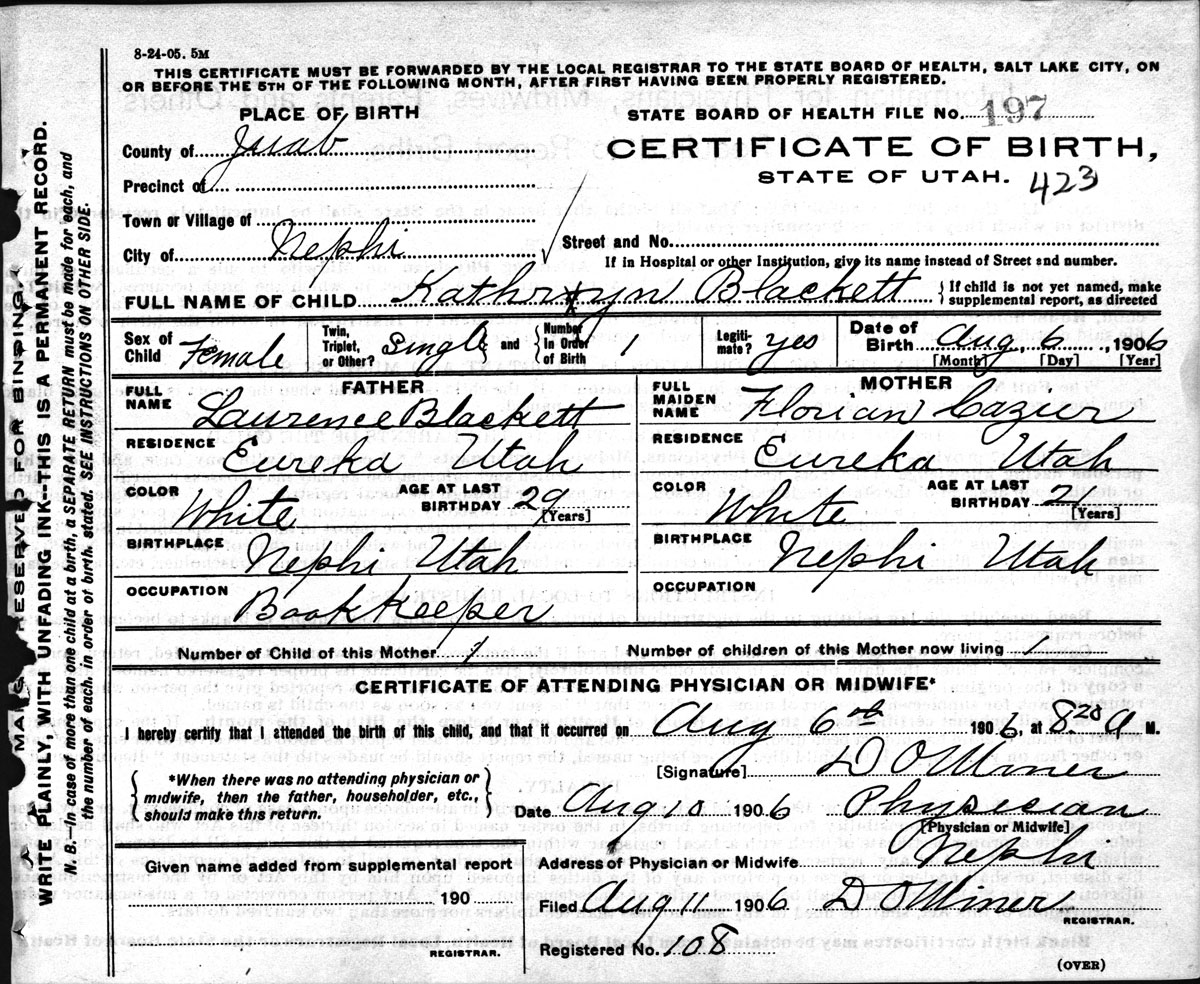 8-24-05. 5M
THIS CERTIFICATE MUST BE FORWARDED BY THE LOCAL REGISTRAR TO THE STATE BOARD OF HEALTH, SALT LAKE CITY, ON
OR BEFORE THE 5TH OF THE FOLLOWING MONTH, AFTER FIRST HAVING BEEN PROPERLY REGISTERED.
PLACE OF BIRTH
STATE BOARD OF HEALTH FILE No. 197
County of Juab
CERTIFICATE OF BIRTH,
Precinct of
STATE OF UTAH. 423
Town or Village of
City of Nephi
Street and No.
If in Hospital or other Institution, give its name instead of Street and number.
FULL NAME OF CHILD Kathryn Blackett { If child is not yet named, make
supplemental report, as directed
Sex of Child Female Twin, Triplet, or Other? Single and Number in Order of Birth 1 Legitimate? yes Date of Birth Aug 6, 1906
[Month] [Day] [Year]
FATHER
FULL NAME Laurence Blackett
RESIDENCE Eureka Utah
COLOR White AGE AT LAST BIRTHDAY 29
[Years]
BIRTHPLACE Nephi Utah
OCCUPATION Bookkeeper
MOTHER
FULL MAIDEN NAME Florian Cazier
RESIDENCE Eureka Utah
COLOR White AGE AT LAST BIRTHDAY 2
[Years]
BIRTHPLACE Nephi Utah
OCCUPATION
Number of Child of this Mother 1 Number of children of this Mother now living 1
CERTIFICATE OF ATTENDING PHYSICIAN OR MIDWIFE*
I hereby certify that I attended the birth of this child, and that it occurred on Aug 6 1906, at A M.
[Signature] D O Miner
{ *When there was no attending physician or
midwife, then the father, householder, etc.,
should make this return. }
Date Aug 10 1906 Physician
[Physician or Midwife]
Given name added from supplemental report
190
REGISTRAR.
Address of Physician or Midwife Nephi
Filed Aug 11 1906 D O Miner
REGISTRAR.
Registered No. 108
(OVER)
MARGIN RESERVED FOR BINDING.
WRITE PLAINLY, WITH UNFADING INK--THIS IS A PERMANENT RECORD.
B: In case of more than one child at a birth, a SEPARATE RETURN must be made for each, and
the number of each, in order of birth, stated. SEE INSTRUCTIONS ON OTHER SIDE.